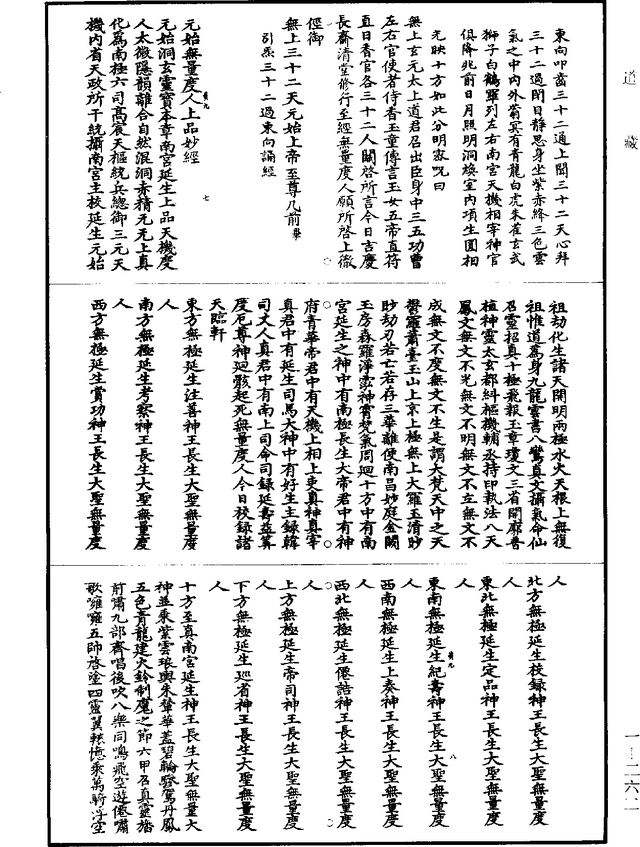 道藏
東向叩齒三十二通上聞三十二天心拜
三十二過閉目靜思身坐紫赤綘三色雲
氣之中內外翁冥有青龍白虎朱雀玄武
獅子白鶴羅列左右南宮天機相宰神官
俱降兆前日月照明洞煥室內項生圓相
光映十方如此分明密呪曰
無上玄元太上道君召出臣身中三五功曹
左右官使者侍香玉童傳言玉女五帝直符
直日香官各三十二人關啓所言今日吉慶
長齋清堂修行至經無量度人願所啓上徹
徑御
無上三十二天元始上帝至尊几前畢
引炁三十二過東向誦經
元始無量度人上品妙經
元始洞玄靈寶本章南宮延生上品天機度
人太微隱韻離合自然混洞赤精元元上真
化爲南極六司高宸天樞統兵總御三元天
機內省天政所干統攝南宮主校延生元始
祖劫化生諸天開明兩極水火天根上無復
祖惟道爲身九龍雲書八鸞真文攝氣命仙
召靈招真十極飛報玉章瓊文三省開廓普
植神靈太玄都糾樞機輔丞持印執法八天
鳳文無文不光無文不明無文不立無文不
成無文不度無文不生是謂大梵天中之天
鬱羅蕭臺玉山上京上極無上大羅玉清眇
眇劫刃若亡若存三華離便南昌妙庭金闕
玉房森羅淨泓神霄梵氣周迴十方中有南
宮延生之神中有南極長生大帝君中有神
府青華帝君中有天機上相上吏真神真宰
真君中有延生司馬大神中有好生主録韓
司丈人真君中有南上司命司録延壽益筭
度厄尊神迴骸起死無量度人今日校録諸
天臨軒
東方無極延生注善神王長生大聖無量度
人
南方無極延生考察神王長生大聖無量度
人
西方無極延生賞功神王長生大聖無量度
人
北方無極延生校録神王長生大聖無量度
人
東北無極延生定品神王長生大聖無量度
人
東南無極延生紀壽神王長生大聖無量度
人
西南無極延生上奏神王長生大聖無量度
人
西北無極延生僊誥神王長生大聖無量度
人
上方無極延生帝司神王長生大聖無量度
人
下方無極延生巡省神王長生大聖無量度
人
十方至真南宮延生神王長生大聖無量大
神並乘紫雲琅輿朱輦華蓋碧輪驂駕丹鳳
五色青龍建火鈴制魔之節六甲召真靈旛
前嘯九部齊唱後吹八樂同鳴飛空遊僊嘯
歌嗈嗈五帥啓塗四靈翼轅億乘萬騎浮空
一—二六二